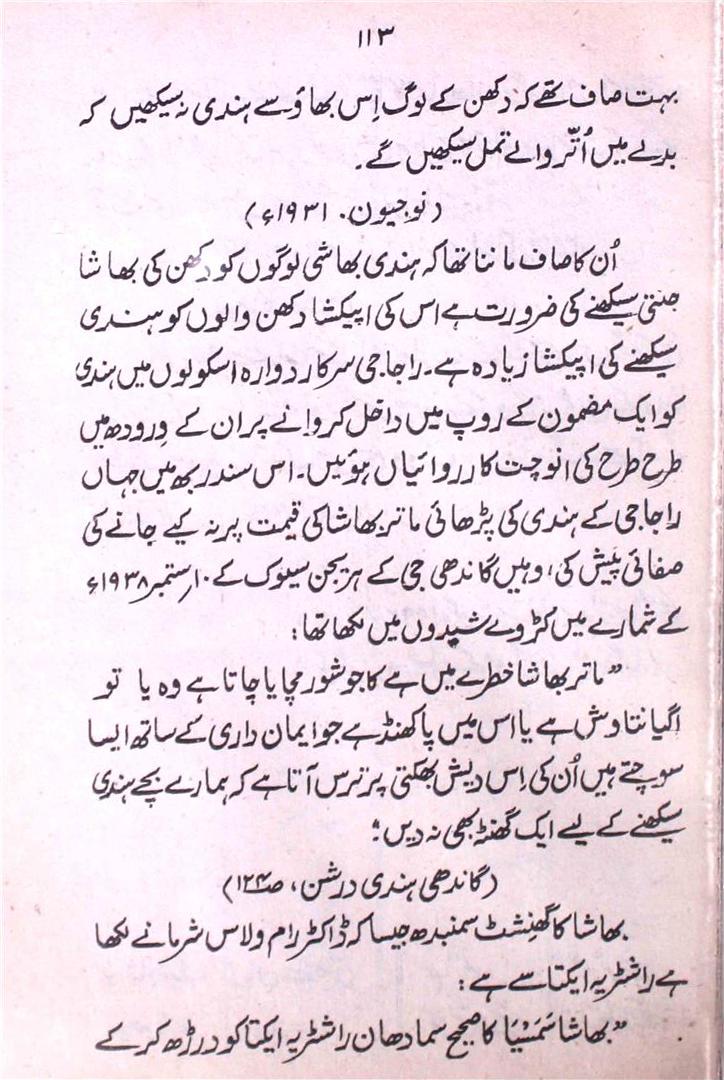 ۱۱۳
بہت صاف تھے کہ دکھن کے لوگ اِس بھاؤ سے ہندی نہ سیکھیں کہ
بدلے میں اُتّر والے تمل سیکھیں گے۔
(نوجیون۔ ۱۹۳۱ء)
اُن کا صاف ماننا تھا کہ ہندی بھاشی لوگوں کو دکھن کی بھاشا
جتنی سیکھنے کی ضرورت ہے اس کی اپیکشا دکھن والوں کو ہندی
سیکھنے کی اپیکشا زیادہ ہے۔ راجا جی سرکار دوارہ اسکولوں میں ہندی
کو ایک مضمون کے روپ میں داخل کروانے پر ان کے وِرودھ میں
طرح طرح کی انوچت کارروائیاں ہوئیں۔ اس سندربھ میں جہاں
راجا جی کے ہندی کی پڑھائی ماتر بھاشا کی قیمت پر نہ کیے جانے کی
صفائی پیش کی، وہیں گاندھی جی کے ہریجن سیوک کے ۱۰ر ستمبر ۱۹۳۸ء
کے شمارے میں کڑوے شبدوں میں لکھا تھا:
”ماتر بھاشا خطرے میں ہے کا جو شور مچایا جاتا ہے وہ یا تو
اگیانتاوش ہے یا اس میں پاکھنڈ ہے جو ایمان داری کے ساتھ ایسا
سوچتے ہیں اُن کی اِس دیش بھکتی پر ترس آتا ہے کہ ہمارے بچے ہندی
سیکھنے کے لیے ایک گھنٹہ بھی نہ دیں“
(گاندھی ہندی درشن، صـ۱۲۴)
بھاشا کا گھنشٹ سمبندھ جیسا کہ ڈاکٹر رام ولاس شرما نے لکھا
ہے راشٹریہ ایکتا سے ہے:
”بھاشا سَمَسْیَا کا صحیح سمادھان راشٹریہ ایکتا کو درڑھ کر کے